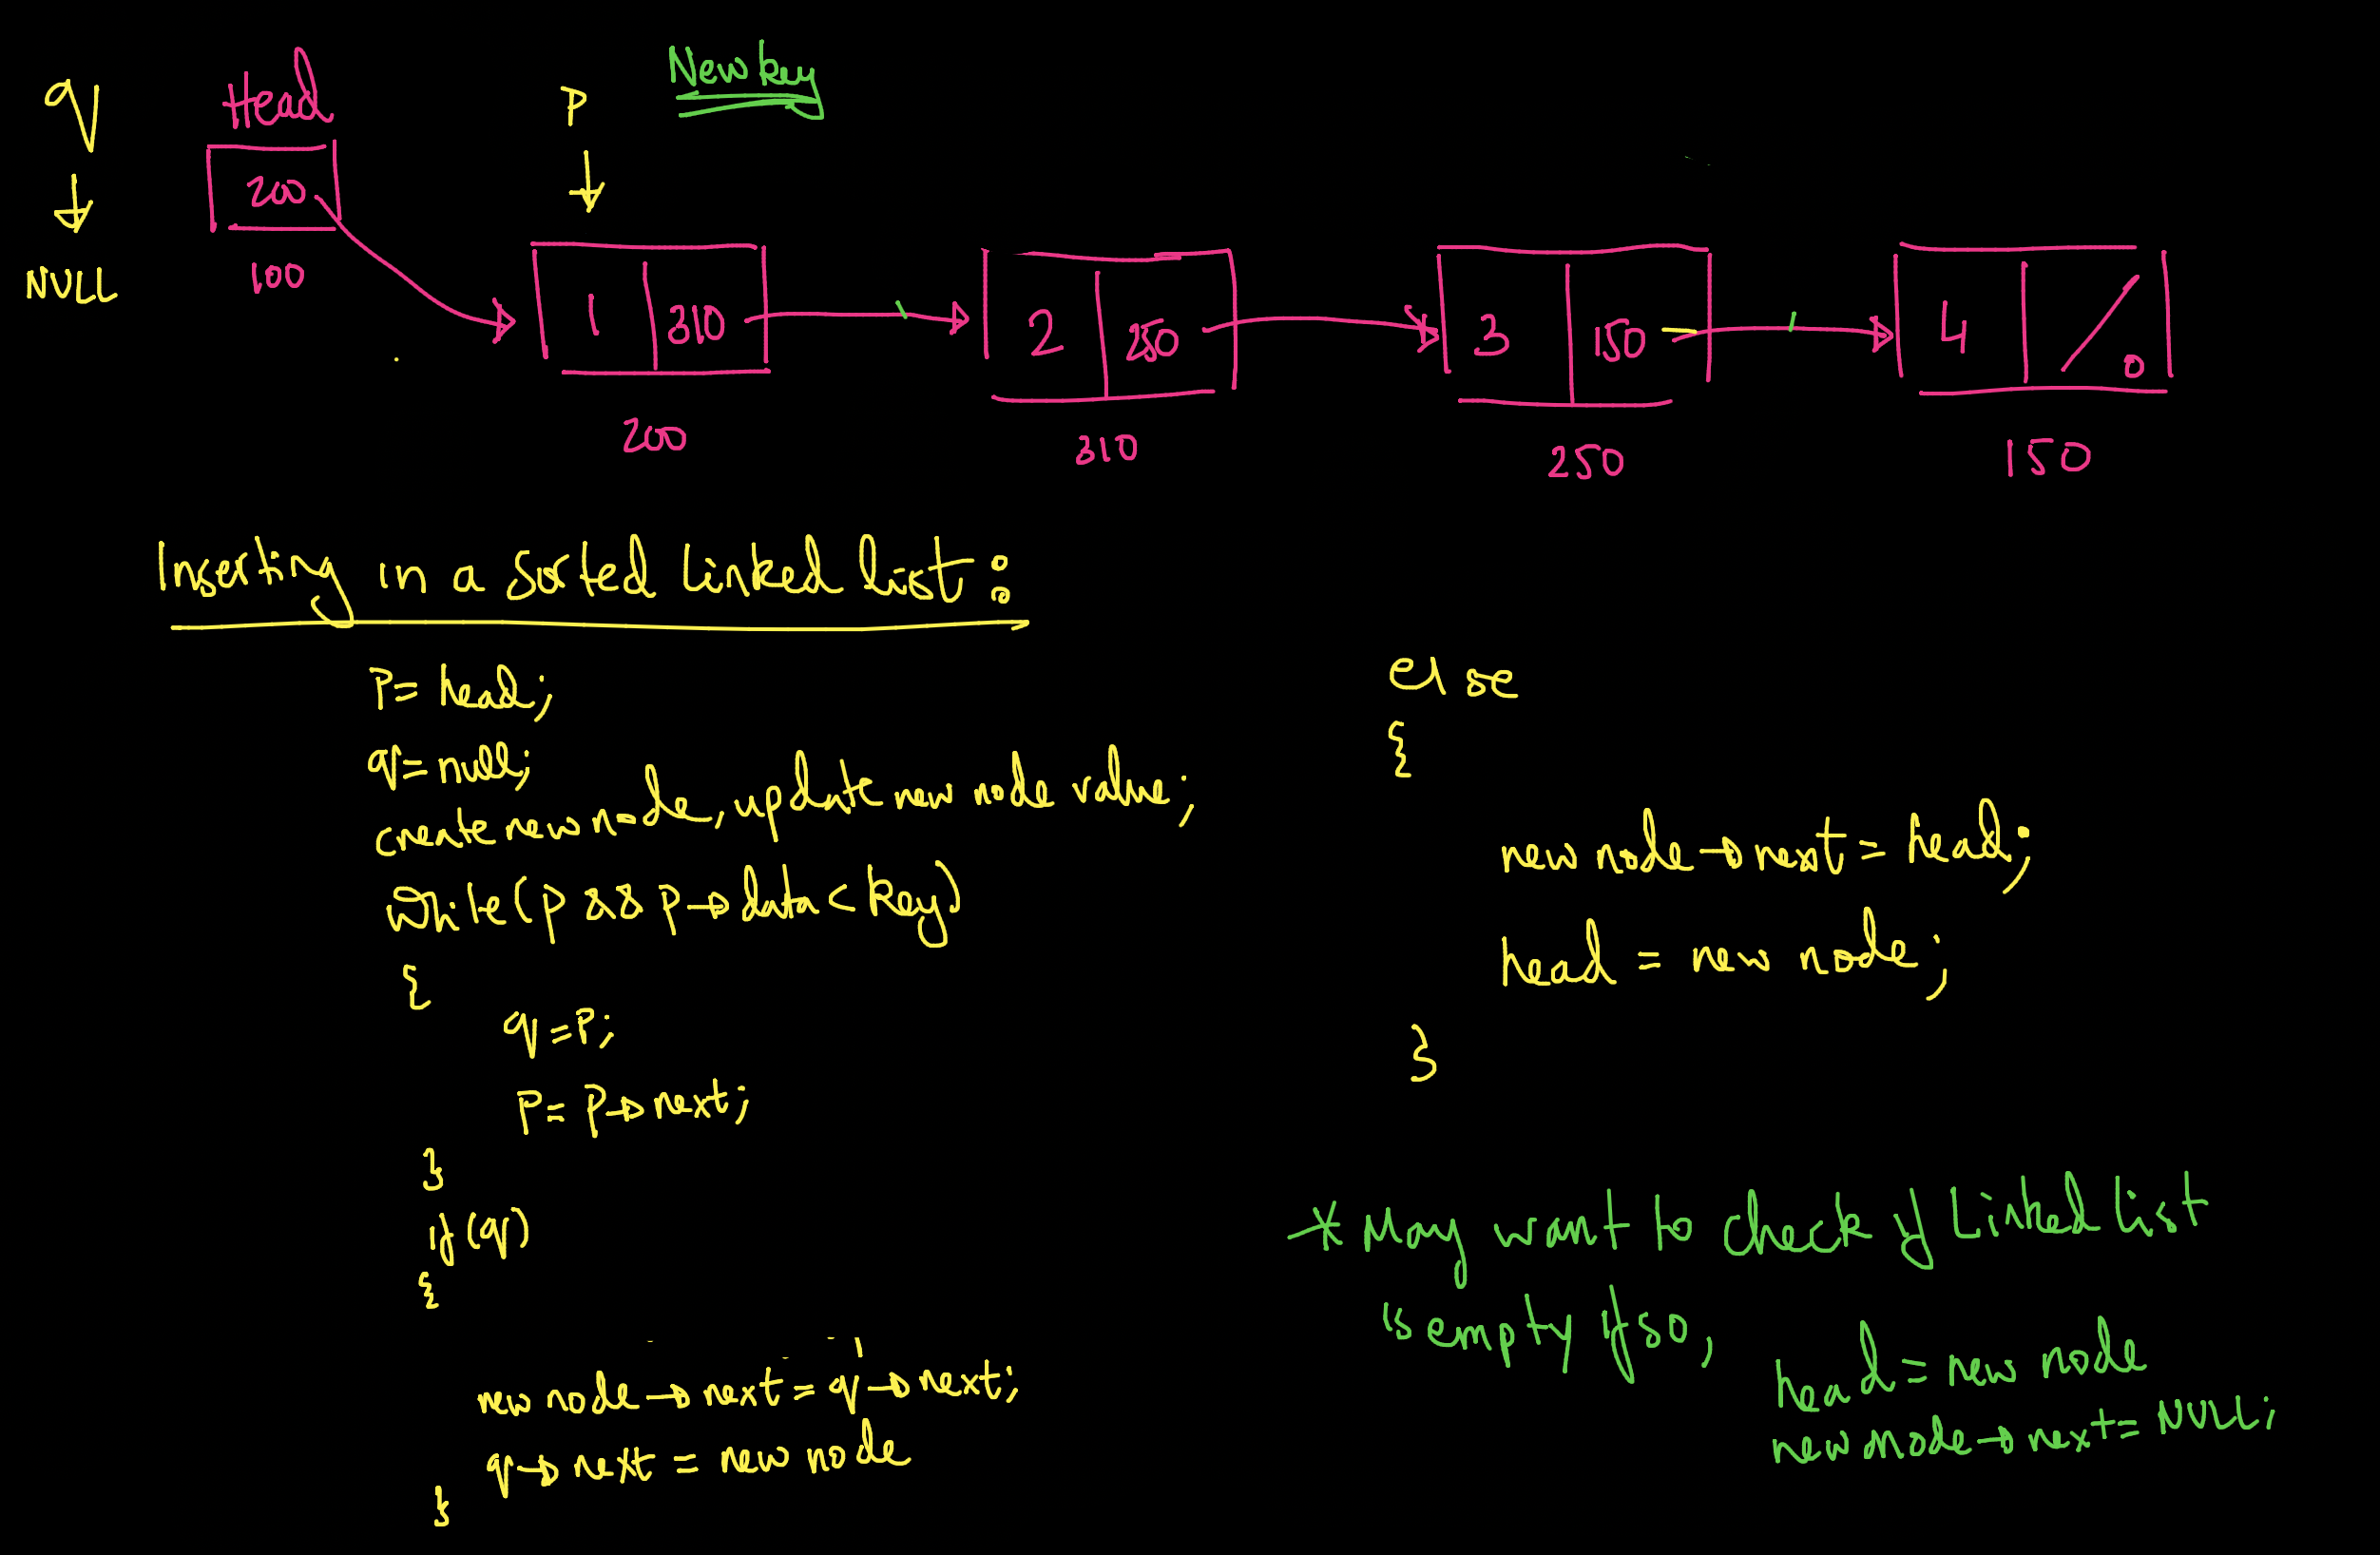 q Head P New key
NULL
200
100
1 310
2 250
3 150
4 0
200 310 250 150
Inserting in a sorted linked list:
P= head;
q=null;
create new node, update new node value;
while(p && p→data < key)
{
q=P;
P= P→next;
}
if (q)
{
new node→next = q→next;
q→next = new node
}
else
{
new node→next = head;
head = new node;
}
* May want to check if Linked list
is empty if so,
head = new node
new node→next= NULL;